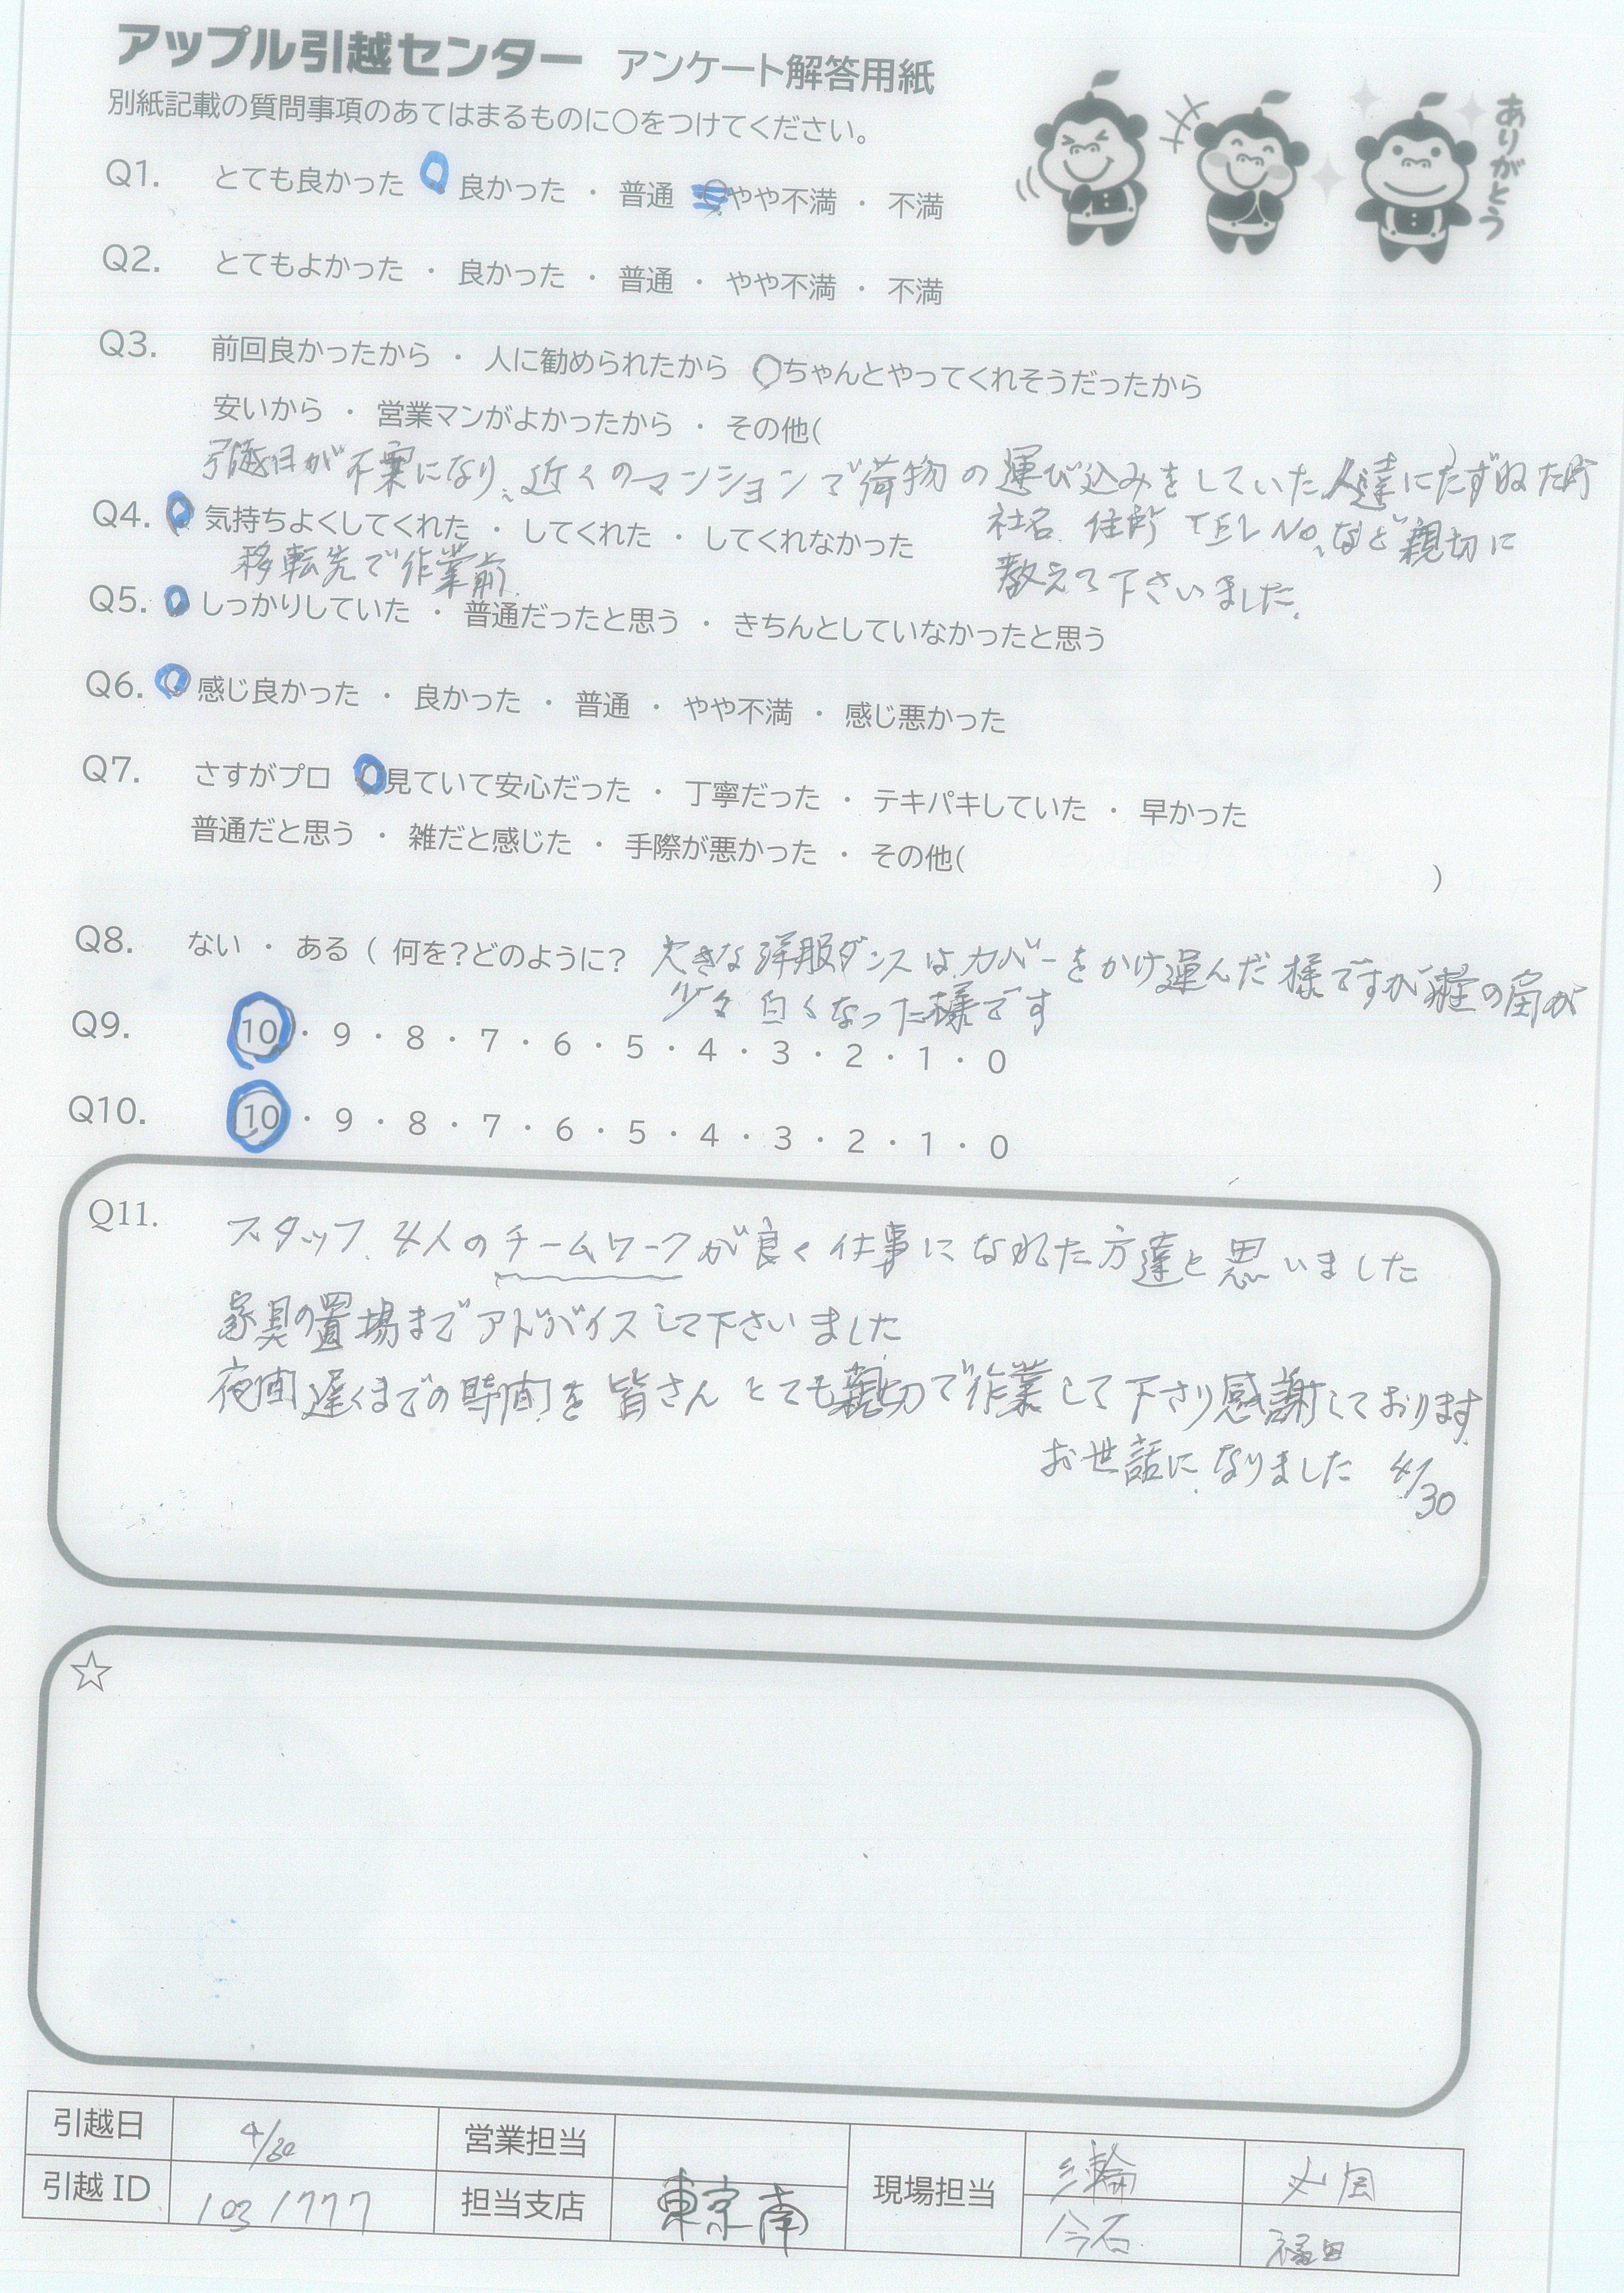 アップル引越センター アンケート解答用紙
別紙記載の質問事項のあてはまるものに○をつけてください。
ありがとう
Q1. とても良かった 良かった ・ 普通 やや不満 ・ 不満
Q2. とてもよかった ・ 良かった ・ 普通 ・ やや不満 ・ 不満
Q3. 前回良かったから ・ 人に勧められたから ○ちゃんとやってくれそうだったから
安いから ・ 営業マンがよかったから ・ その他(
引越日が不案になり、近くのマンションで荷物の運び込みをしていた人達にたずねた所)
社名、住所 TEL No、など親切に
教えて下さいました。
Q4. 気持ちよくしてくれた ・ してくれた ・ してくれなかった
移転先で作業前
Q5. しっかりしていた ・ 普通だったと思う ・ きちんとしていなかったと思う
Q6. 感じ良かった ・ 良かった ・ 普通 ・ やや不満 ・ 感じ悪かった
Q7. さすがプロ 見ていて安心だった ・ 丁寧だった ・ テキパキしていた ・ 早かった
普通だと思う ・ 雑だと感じた ・ 手際が悪かった ・ その他( )
Q8. ない ・ ある ( 何を?どのように? 大きな洋服ダンスはカバーをかけ運んだ様ですが の が
少々白くなった様です
Q9. 10 ・ 9 ・ 8 ・ 7 ・ 6 ・ 5 ・ 4 ・ 3 ・ 2 ・ 1 ・ 0
Q10. 10 ・ 9 ・ 8 ・ 7 ・ 6 ・ 5 ・ 4 ・ 3 ・ 2 ・ 1 ・ 0
Q11. スタッフ、4人のチームワークが良く仕事になれた方達と思いました
家具の置場までアドバイスして下さいました
夜間遅くまでの時間を皆さんとても親切で作業して下さり感謝しております
お世話になりました 4/30
☆
引越日 4/30 営業担当 現場担当 三輪
引越 ID 1031777 担当支店 東京南 今石 福田